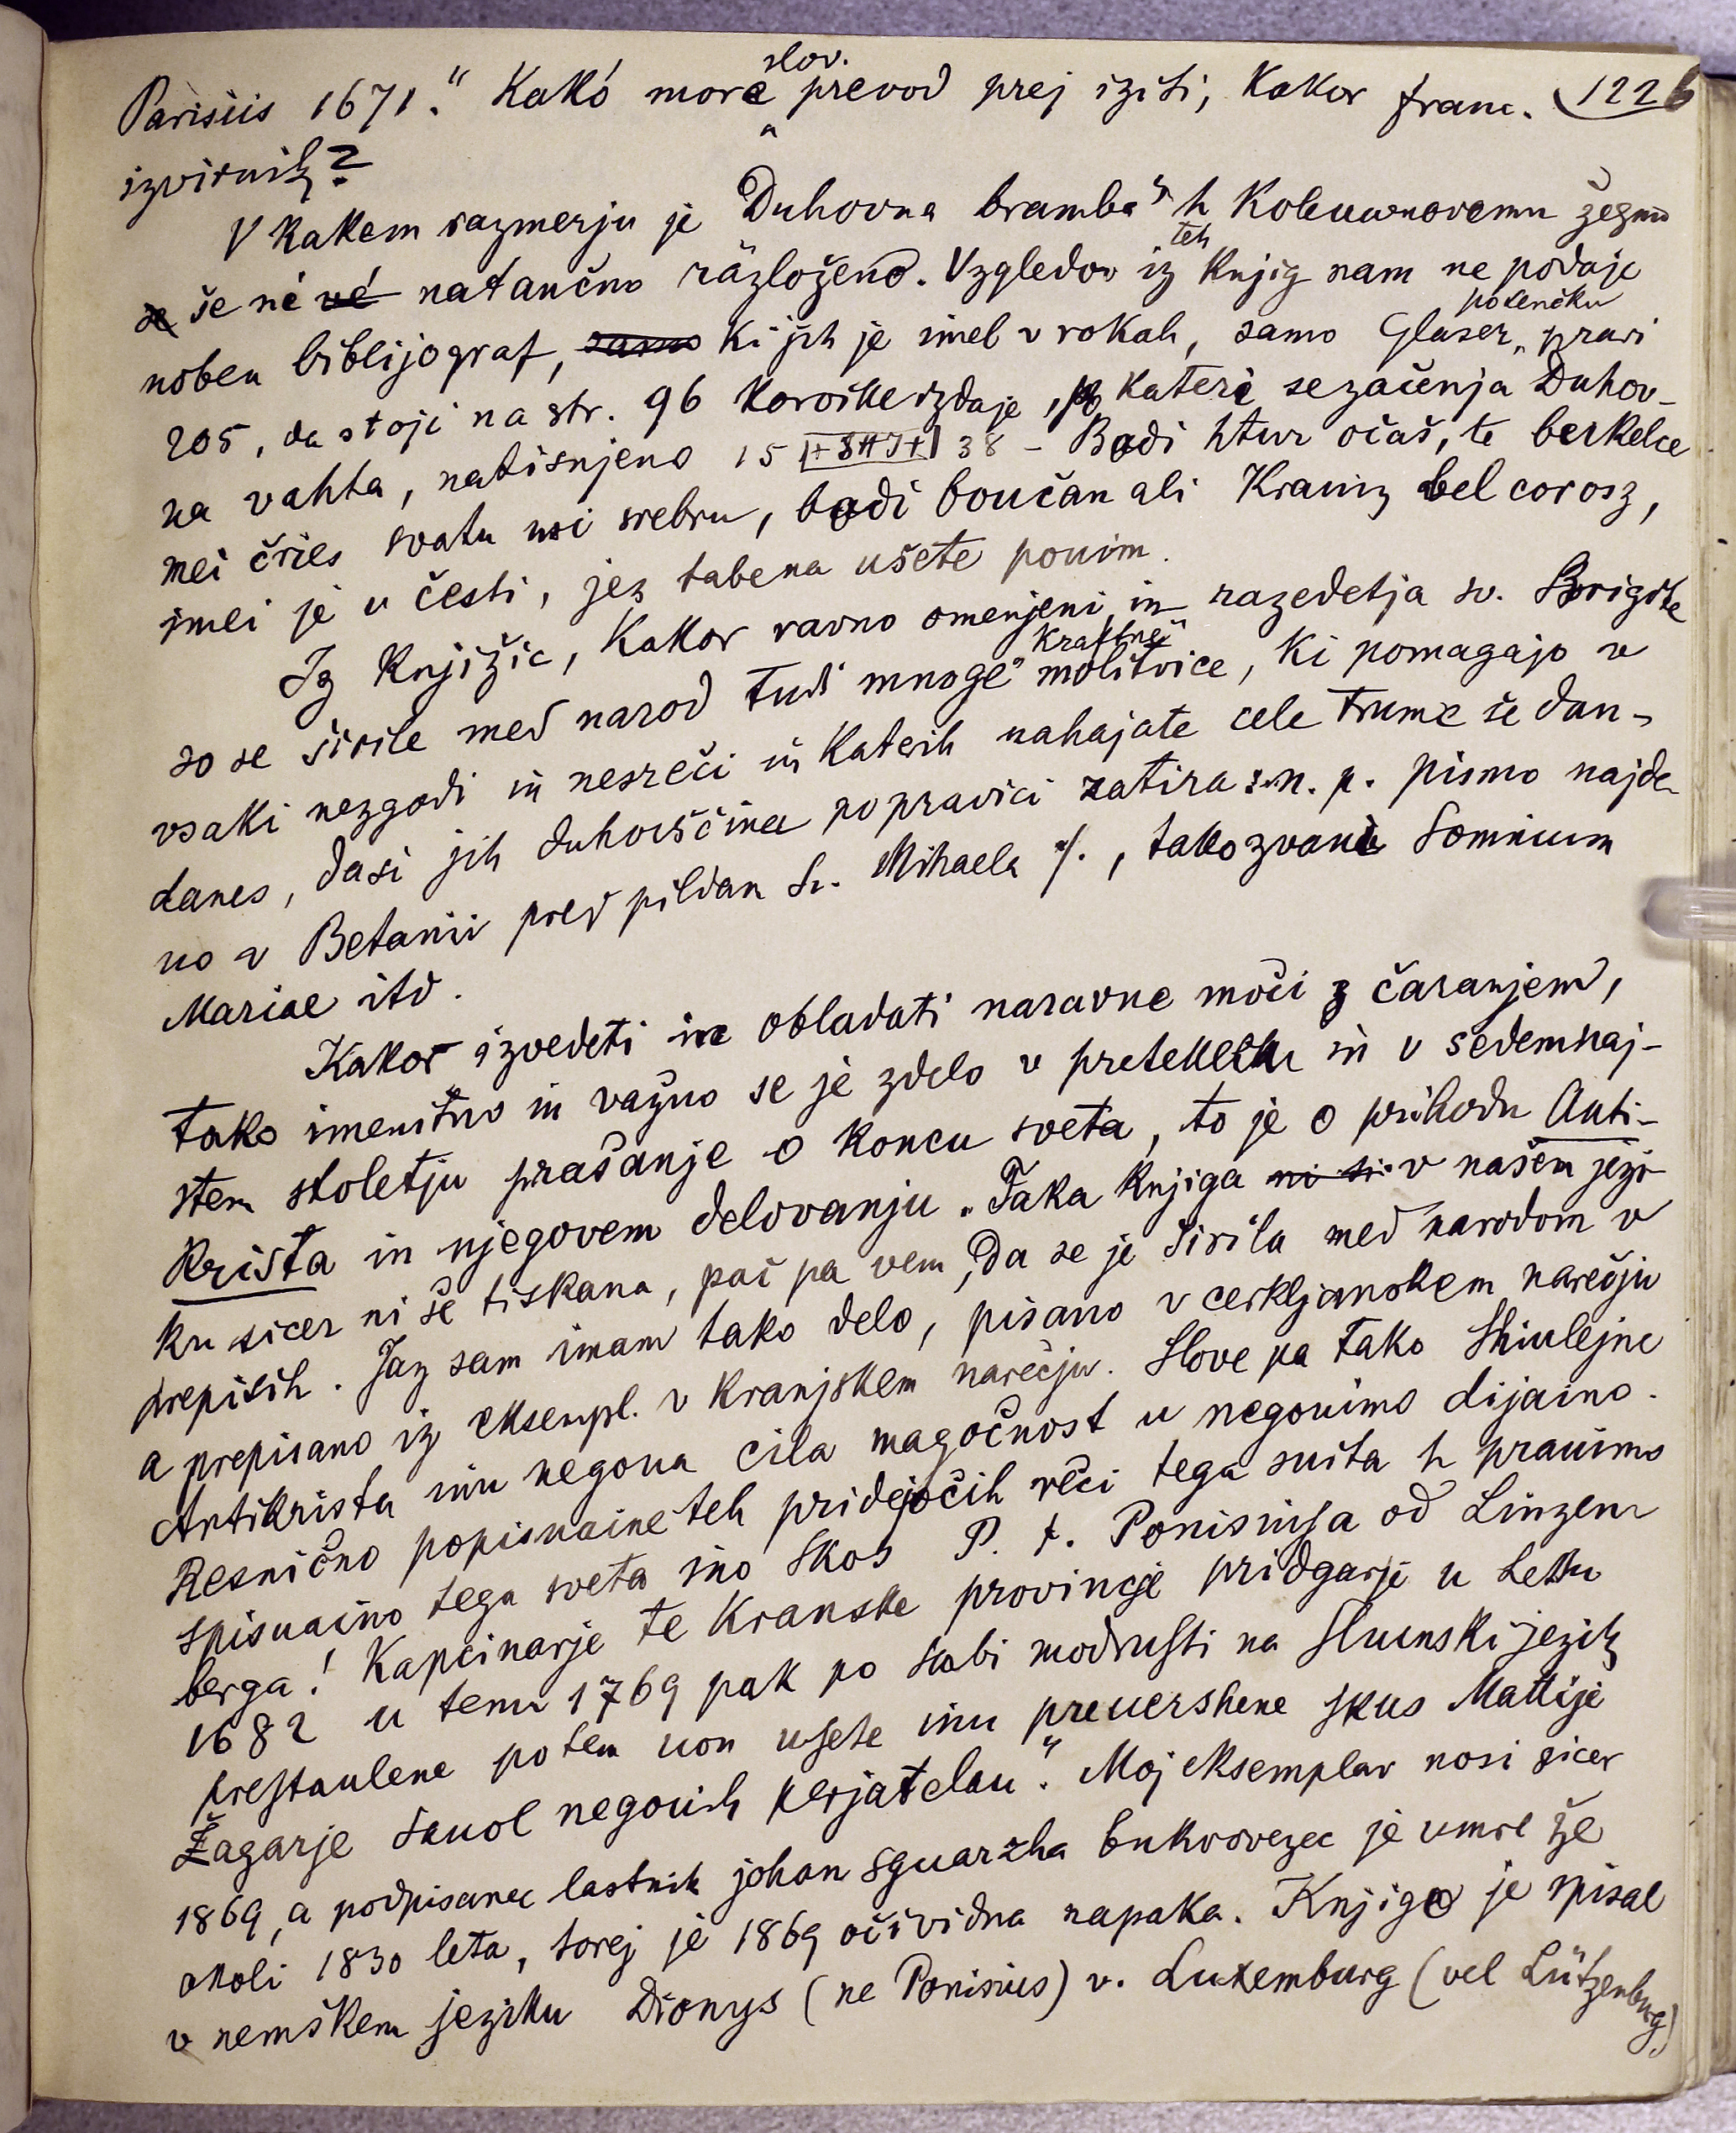 Parisiis 1671." Kakó more slov. prevod prej iziti, kakor franc. 122b
izvirnik?
V kakem razmerju je Duhovna bramba" k Koleuwnovemu žegnu
se še ni vé natančno razloženo. Vzgledov iz teh knjig nam ne podaje
noben biblijograf, samo ki jih je imel v rokah, samo Glaser, pravi
205, da stoji na str. 96 koroške izdaje, kateri se začenja Duhov-
na vahta, natisnjeno 15 |+SHJ+| 38 - Bodi htur očaš, te berkelce
mei čries svatu usi srebru, bodi boučan ali Krainz bel corosz,
imei je u česti, jez tabena ušete pouim.
Iz knjižic, kakor ravno omenjeni, in razedetja sv. Brigite
so se širile med narod tudi mnoge "kraftne" molitvice, ki pomagajo v
vsaki nezgodi in nesreči in katerih nahajate cele trume še dan-
danes, dasi jih duhovščina po pravici zatira: n. p. pismo najde-
no v Betanii pred pildam sv. Mihaela /., tako zvani Somnium
Mariae itd.
Kakor izvedeti in obladati naravne moči z čaranjem,
tako imenitno in važno se je zdelo v preteklem in v sedemnaj-
stem stoletju prašanje o koncu sveta, to je o prihodu Anti-
krista in njegovem delovanju. Taka knjiga ni si v našem jezi-
ku sicer ni še tiskana, pač pa vem, da se je širila med narodom v
prepisih. Jaz sam imam tako delo, pisano v cerkljanskem narečju
a prepisano iz eksempl. v kranjskem narečju. Slove pa tako Shiulejne
Antikrista inu negoua cila magočnost u negouimo dijaino.
Resnično popisuaine teh pridejočih reči tega suita h prauimo
spisuaino tega sveta ino skos P. f. Ponisiusa od Linzem
berga! Kapcinarje te Kranske provincje pridgarje u lettu
1682 u temu 1769 pak po slabi modrusti na slunski jezik
prestaulene potem uon usete inu preuershene skus Mattije
Žagarje sauol negouih perjatelou". Moj eksemplar nosi sicer
1869, a podpisanec lastnik johan sguarzha bukvovezec je umrl že
okoli 1830 leta, torej je 1869 očividna napaka. Knjigo je spisal
v nemškem jeziku Dionys (ne Ponisius) v. Luxemburg (vel Lützenburg)